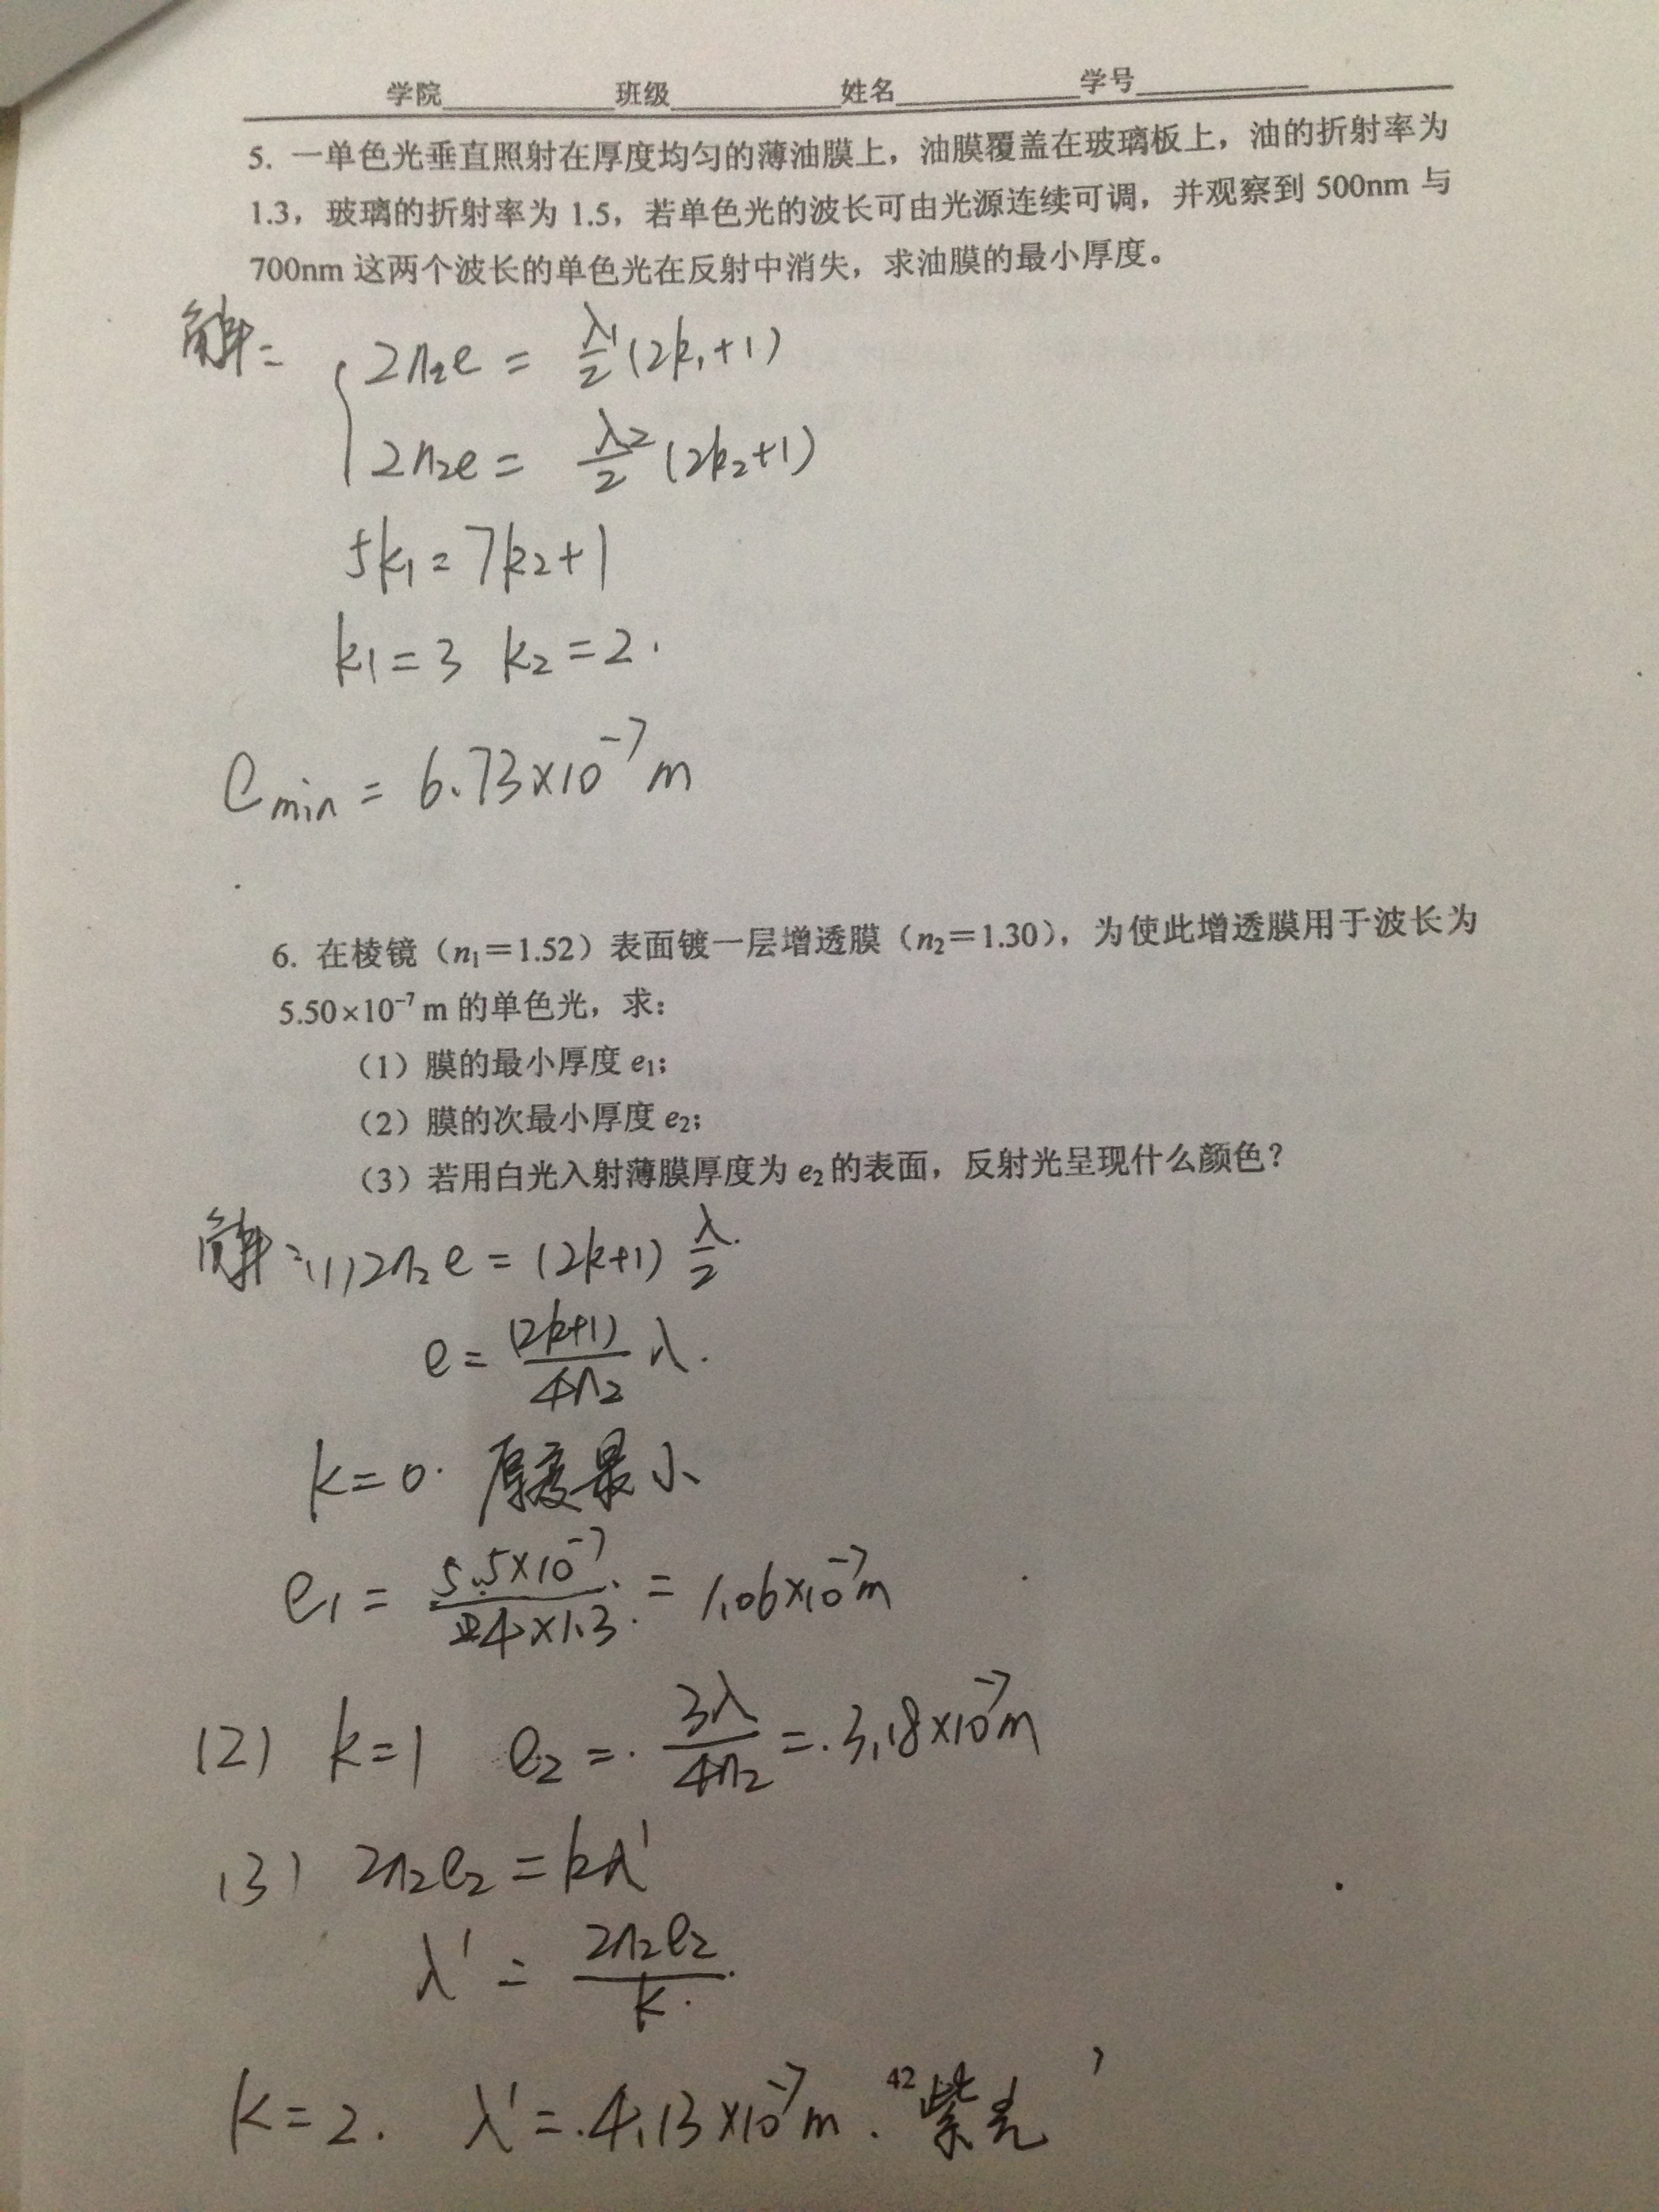 学院 班级 姓名 学号
5. 一单色光垂直照射在厚度均匀的薄油膜上，油膜覆盖在玻璃板上，油的折射率为
1.3，玻璃的折射率为 1.5，若单色光的波长可由光源连续可调，并观察到 500nm 与
700nm 这两个波长的单色光在反射中消失，求油膜的最小厚度。
解: 2n₂e = λ₁/2 (2k₁+1)
2n₂e = λ₂/2 (2k₂+1)
5k₁=7k₂+1
k₁=3 k₂=2.
e_min = 6.73×10⁻⁷m
6. 在棱镜（n₁＝1.52）表面镀一层增透膜（n₂＝1.30），为使此增透膜用于波长为
5.50×10⁻⁷ m 的单色光，求：
（1）膜的最小厚度 e₁;
（2）膜的次最小厚度 e₂;
（3）若用白光入射薄膜厚度为 e₂ 的表面，反射光呈现什么颜色？
解: (1) 2n₂e = (2k+1) λ/2
e = (2k+1)/4n₂ λ.
k=0. 厚度最小
e₁ = 5.5×10⁻⁷/4×1.3 = 1.06×10⁻⁷m
(2) k=1 e₂ = 3λ/4n₂ = 3.18×10⁻⁷m
(3) 2n₂e₂ = kλ'
λ' = 2n₂e₂/k.
k=2. λ'=4.13×10⁻⁷m. 紫光
42